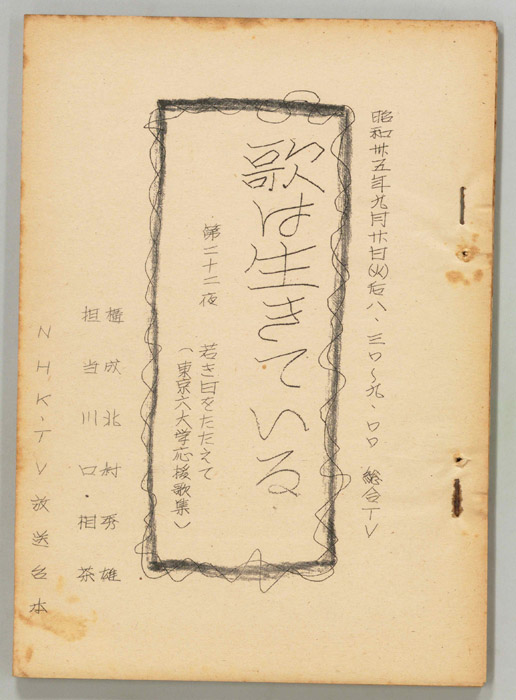 昭和卅五年九月廿日(火)后八、三〇〜九、〇〇　総合TV
歌は生きている
第二十二夜　若き日をたたえて
(東京六大学応援歌集)
構成　北村秀雄
担当　川口・相茶
NHK-TV放送台本